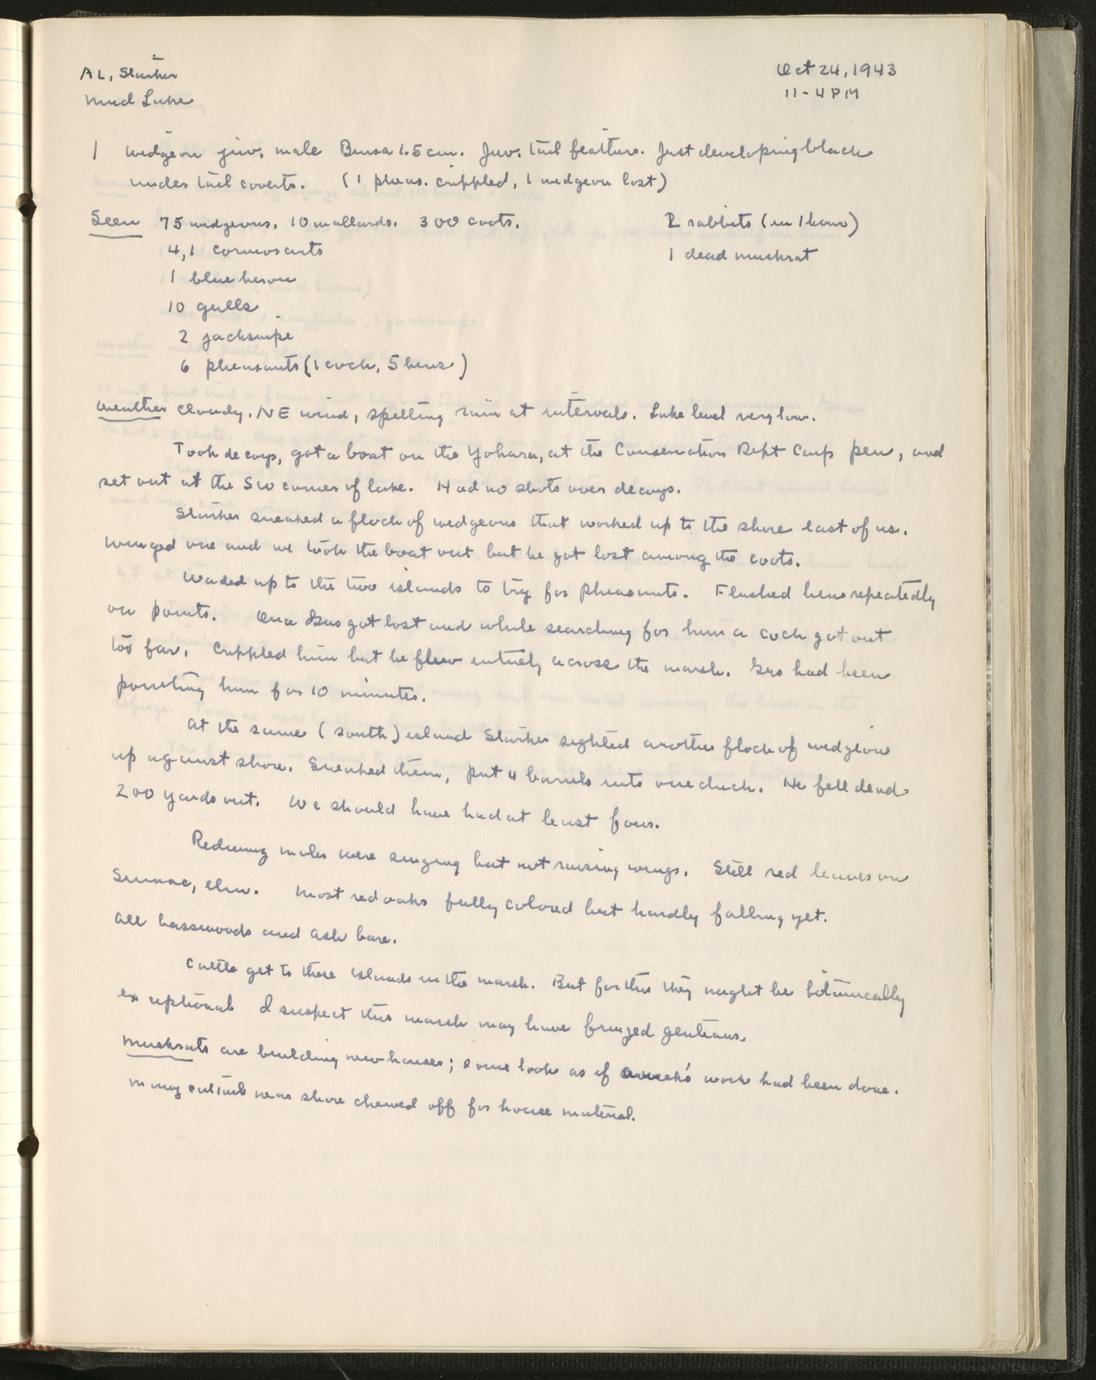 AL, Starker
Oct 24, 1943
Mud Lake
11-4 PM
1 widgeon juv. male Bursa 1.5 cm. Juv. tail feathers. Just developing black
under tail coverts. (1 pheas. crippled, 1 widgeon lost)
Seen 75 widgeons. 10 mallards. 300 coots.
2 rabbits (in 1 hour)
4,1 cormorants
1 dead muskrat
1 blue heron
10 gulls
2 jacksnipe
6 pheasants (1 cock, 5 hens)
Weather cloudy. NE wind, spelling rain at intervals. Lake level very low.
Took decoys, got a boat on the Yahara, at the Conservation Dept Carp pen, and
set out at the SW corner of lake. Had no shots over decoys.
Starker sneaked a flock of widgeons that worked up to the shore east of us.
Winged one and we took the boat out but he got lost among the coots.
Waded up to the two islands to try for pheasants. Flushed hens repeatedly
on points. Once Gus got lost and while searching for him a cock got out
too far. Crippled him but he flew entirely across the marsh. Gus had been
pointing him for 10 minutes.
At the same (south) island Starker sighted another flock of widgeon
up against shore. Sneaked them, put 4 barrels into one duck. He fell dead
200 yards out. We should have had at least four.
Redwing males were singing but not raising wings. Still red leaves on
Sumac, elm. Most red oaks fully colored but hardly falling yet.
All basswoods and ash bare.
Cattle get to these islands in the marsh. But for this they might be botanically
exceptional I suspect this marsh may have fringed gentians.
Muskrats are building new houses; some look as if a week's work had been done.
Many cattails near shore chewed off for house material.